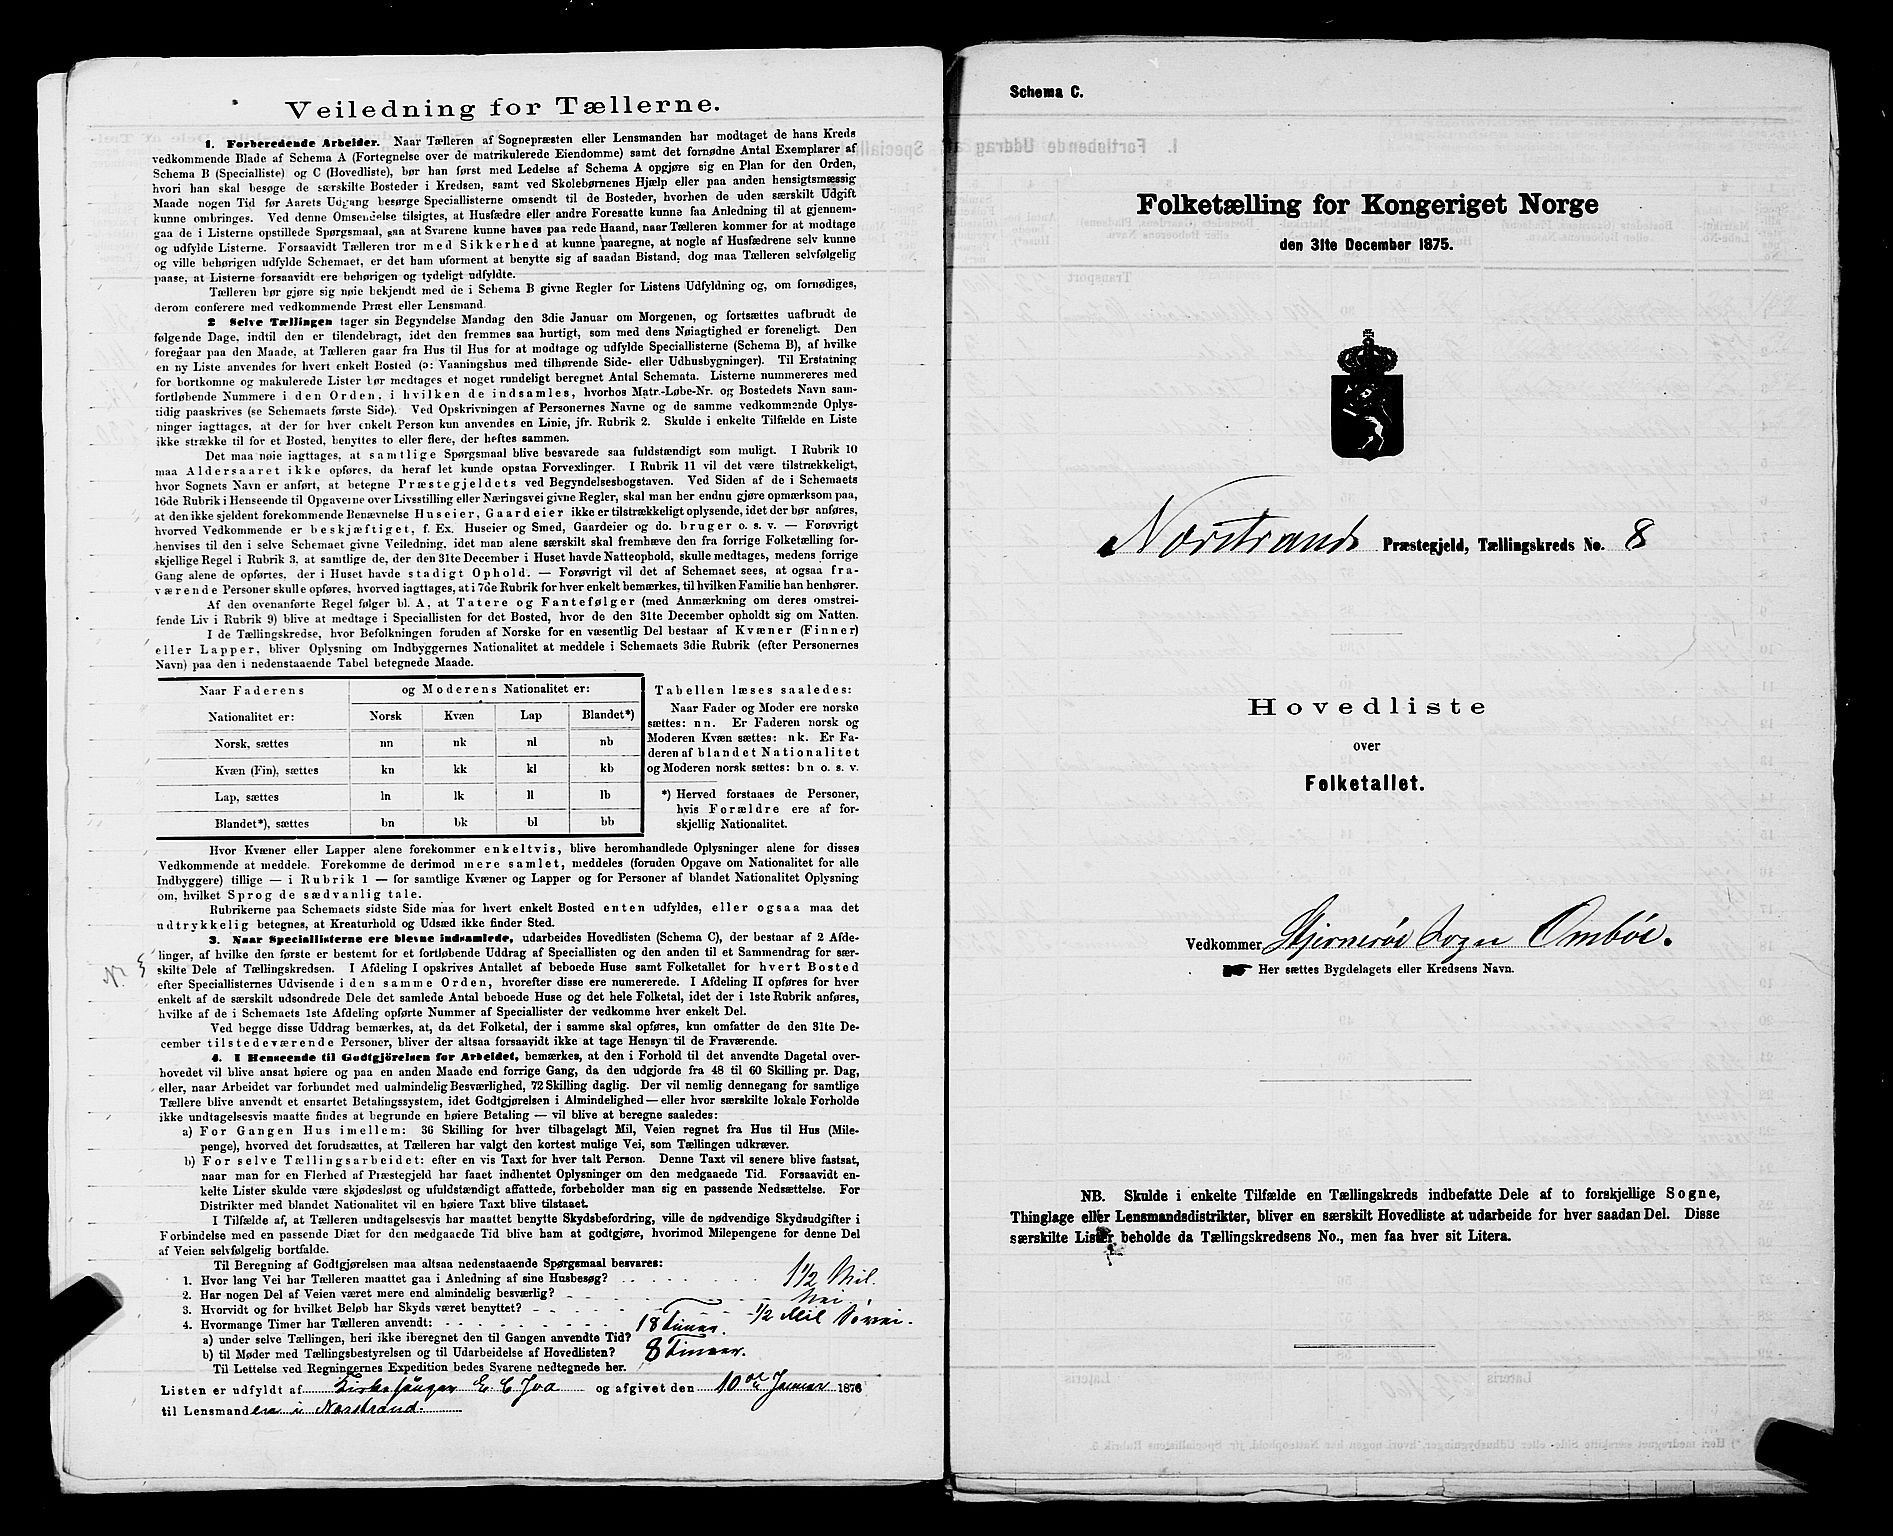 Veiledning for Tællerne.
1. Forberedende Arbeider. Naar Tælleren af Sognepræsten eller Lensmanden har modtaget de hans Kreds
vedkommende Blade af Schema A (Fortegnelse over de matrikulerede Eiendomme) samt det fornødne Antal Exemplarer af
Schema B (Specialliste) og C (Hovedliste), bør han først med Ledelse af Schema A opgjøre sig en Plan for den Orden,
hvori han skal besøge de særskilte Bosteder i Kredsen, samt ved Skolebørnenes Hjælp eller paa anden hensigtsmæssig
Maade nogen Tid før Aarets Udgang besørge Speciallisterne omsendt til de Bosteder, hvorhen de uden særskilt Udgift
kunne ombringes. Ved denne Omsendelse tilsigtes, at Husfædre eller andre Foresatte kunne faa Anledning til at gjennem-
gaa de i Listerne opstillede Spørgsmaal, saa at Svarene kunne haves paa rede Haand, naar Tælleren kommer for at modtage
og udfylde Listerne. Forsaavidt Tælleren tror med Sikkerhed at kunne paaregne, at nogle af Husfædrene selv kunne
og ville behørigen udfylde Schemaet, er det ham uforment at benytte sig af saadan Bistand, dog maa Tælleren selvfølgelig
paase, at Listerne forsaavidt ere behørigen og tydeligt udfyldte.
Tælleren bør gjøre sig nøie bekjendt med de i Schema B givne Regler for Listens Udfyldning og, om fornødiges,
derom conferere med vedkommende Præst eller Lensmand.
2 Selve Tællingen tager sin Begyndelse Mandag den 3die Januar om Morgenen, og fortsættes uafbrudt de
følgende Dage, indtil den er tilendebragt, idet den fremmes saa hurtigt, som med dens Nøiagtighed er foreneligt. Den
foregaar paa den Maade, at Tælleren gaar fra Hus til Hus for at modtage og udfylde Speciallisterne (Schema B), af hvilke
en ny Liste anvendes for hvert enkelt Bosted (ɔ: Vaaningshus med tilhørende Side- eller Udhusbygninger). Til Erstatning
for bortkomne og makulerede Lister bør medtages et noget rundeligt beregnet Antal Schemata. Listerne nummereres med
fortløbende Nummere i den Orden, i hvilken de indsamles, hvorhos Matr.-Løbe-Nr. og Bostedets Navn sam-
tidig paaskrives (se Schemaets første Side). Ved Opskrivningen af Personernes Navne og de samme vedkommende Oplys-
ninger iagttages, at der for hver enkelt Person kun anvendes en Linie, jfr. Rubrik 2. Skulde i enkelte Tilfælde en Liste
ikke strække til for et Bosted, benyttes to eller flere, der heftes sammen.
Det maa nøie iagttages, at samtlige Spørgsmaal blive besvarede saa fuldstændigt som muligt. I Rubrik 10
maa Aldersaaret ikke opføres, da heraf let kunde opstaa Forvexlinger. I Rubrik 11 vil det være tilstrækkeligt,
hvor Sognets Navn er anført, at betegne Præstegjeldets ved Begyndelsesbogstaven. Ved Siden af de i Schemaets
16de Rubrik i Henseende til Opgaverne over Livsstilling eller Næringsvei givne Regler, skal man her endnu gjøre opmærksom paa,
at den ikke sjeldent forekommende Benævnelse Huseier, Gaardeier ikke er tilstrækkeligt oplysende, idet der bør anføres,
hvorved Vedkommende er beskjæftiget, f. Ex. Huseier og Smed, Gaardeier og do. bruger o. s. v. — Forøvrigt
henvises til den i selve Schemaet givne Veiledning, idet man alene særskilt skal fremhæve den fra forrige Folketælling for-
skjellige Regel i Rubrik 3, at samtlige de, der den 31te December i Huset havde Natteophold, skulle medtages, medens forrige
Gang alene de opførtes, der i Huset havde stadigt Ophold. — Forøvrigt vil det af Schemaet sees, at ogsaa fra-
værende Personer skulle opføres, hvorved iagttages, at i 7de Rubrik for hver enkelt bemærkes, til hvilken Familie han henhører.
Af den ovenanførte Regel følger bl. A., at Tatere og Fantefølger (med Anmærkning om deres omstrei-
fende Liv i Rubrik 9) blive at medtage i Speciallisten for det Bosted, hvor de den 31te December opholdt sig om Natten.
I de Tællingskredse, hvor Befolkningen foruden af Norske for en væsentlig Del bestaar af Kvæner (Finner)
eller Lapper, bliver Oplysning om Indbyggernes Nationalitet at meddele i Schemaets 3die Rubrik (efter Personernes
Navn) paa den i nedenstaaende Tabel betegnede Maade.
Naar Faderens og Moderens Nationalitet er:
Nationalitet er: Norsk Kvæn Lap Blandet*)
Norsk, sættes nn nk nl nb
Kvæn (Fin), sættes kn kk kl kb
Lap, sættes ln lk ll lb
Blandet*), sættes bn bk bl bb
Tabellen læses saaledes:
Naar Fader og Moder ere norske
sættes: nn. Er Faderen norsk og
Moderen Kvæn sættes: nk. Er Fa-
deren af blandet Nationalitet
og Moderen norsk sættes: bn o. s. v.
*) Herved forstaaes de Personer,
hvis Forældre ere af for-
skjellig Nationalitet.
Hvor Kvæner eller Lapper alene forekommer enkeltvis, blive heromhandlede Oplysninger alene for disses
Vedkommende at meddele. Forekomme de derimod mere samlet, meddeles (foruden Opgave om Nationalitet for alle
Indbyggere) tillige — i Rubrik 1 — for samtlige Kvæner og Lapper og for Personer af blandet Nationalitet Oplysning
om, hvilket Sprog de sædvanlig tale.
Rubrikerne paa Schemaets sidste Side maa for hvert enkelt Bosted enten udfyldes, eller ogsaa maa det
udtrykkelig betegnes, at Kreaturhold og Udsæd ikke finder Sted.
3. Naar Speciallisterne ere blevne indsamlede, udarbeides Hovedlisten (Schema C), der bestaar af 2 Afde-
linger, af hvilke den første er bestemt for et fortløbende Uddrag af Speciallisten og den anden til et Sammendrag for sær-
skilte Dele af Tællingskredsen. I Afdeling I opskrives Antallet af beboede Huse samt Folketallet for hvert Bosted
efter Speciallisternes Udvisende i den samme Orden, hvorefter disse ere numererede. I Afdeling II opføres for hver
enkelt af de særskilt udsondrede Dele det samlede Antal beboede Huse og det hele Folketal, idet der i 1ste Rubrik anføres,
hvilke af de i Schemaets 1ste Afdeling opførte Nummere af Speciallister der vedkomme hver enkelt Del.
Ved begge disse Uddrag bemærkes, at, da det Folketal, der i samme skal opføres, kun omfatter de den 31te De-
cember tilstedeværende Personer, bliver der altsaa forsaavidt ikke at tage Hensyn til de Fraværende.
4. I Henseende til Godtgjörelsen for Arbeidet, bemærkes, at den i Forhold til det anvendte Dagetal over-
hovedet vil blive ansat høiere og paa en anden Maade end forrige Gang, da den udgjorde fra 48 til 60 Skilling pr. Dag,
eller, naar Arbeidet var forbundet med ualmindelig Besværlighed, 72 Skilling daglig. Der vil nemlig dennegang for samtlige
Tællere blive anvendt et ensartet Betalingssystem, idet Godtgjørelsen i Almindelighed — eller hvor særskilte lokale Forholde
ikke undtagelsesvis maatte findes at begrunde en høiere Betaling — vil blive at beregne saaledes:
a) For Gangen Hus imellem: 36 Skilling for hver tilbagelagt Mil, Veien regnet fra Hus til Hus (Mile-
penge), hvorved det forudsættes, at Tælleren har valgt den kortest mulige Vei, som Tællingen udkræver.
b) For selve Tællingsarbeidet: efter en vis Taxt for hver talt Person. Denne Taxt vil senere blive fastsat,
naar man for en Flerhed af Præstegjeld har faaet indhentet Oplysninger om den medgaaede Tid. Forsaavidt en-
kelte Lister skulde være skjødesløst og ufuldstændigt affattede, forbeholder man sig en passende Nedsættelse. For
Distrikter med blandet Nationalitet vil en høiere Taxt blive tilstaaet.
I Tilfælde af, at Tælleren undtagelsesvis har maattet benytte Skydsbefordring, ville de nødvendige Skydsudgifter i
Forbindelse med en passende Diæt for den medgaaede Tid blive ham at godtgjøre, hvorimod Milepengene for denne Del
af Veien selvfølgelig bortfalde.
Til Beregning af Godtgjørelsen maa altsaa nedenstaaende Spørgsmaal besvares:
1. Hvor lang Vei har Tælleren maattet gaa i Anledning af sine Husbesøg? 1 1/2 Mil.
2. Har nogen Del af Veien været mere end almindelig besværlig? Nei.
3. Hvorvidt og for hvilket Beløb har Skyds været benyttet? 1/2 Mil Søvei.
4. Hvormange Timer har Tælleren anvendt:
a) under selve Tællingen, heri ikke iberegnet den til Gangen anvendte Tid? 18 Timer.
b) til Møder med Tællingsbestyrelsen og til Udarbeidelse af Hovedlisten? 8 Timer.
Til Lettelse ved Regningernes Expedition bedes Svarene nedtegnede her.
Listen er udfyldt af Kirkesanger E. C. Joa og afgivet den 10de Januar 1876
til Lensmanden i Narstrand.
Schema C.
Folketælling for Kongeriget Norge
den 31te December 1875.
Narstrands Præstegjeld, Tællingskreds No. 8
Hovedliste
over
Folketallet.
Vedkommer Stjernerøe Sogn Ombøe.
Her sættes Bygdelagets eller Kredsens Navn.
NB. Skulde i enkelte Tilfælde en Tællingskreds indbefatte Dele af to forskjellige Sogne,
Thinglage eller Lensmandsdistrikter, bliver en særskilt Hovedliste at udarbeide for hver saadan Del. Disse
særskilte Lister beholde da Tællingskredsens No., men faa hver sit Litera.